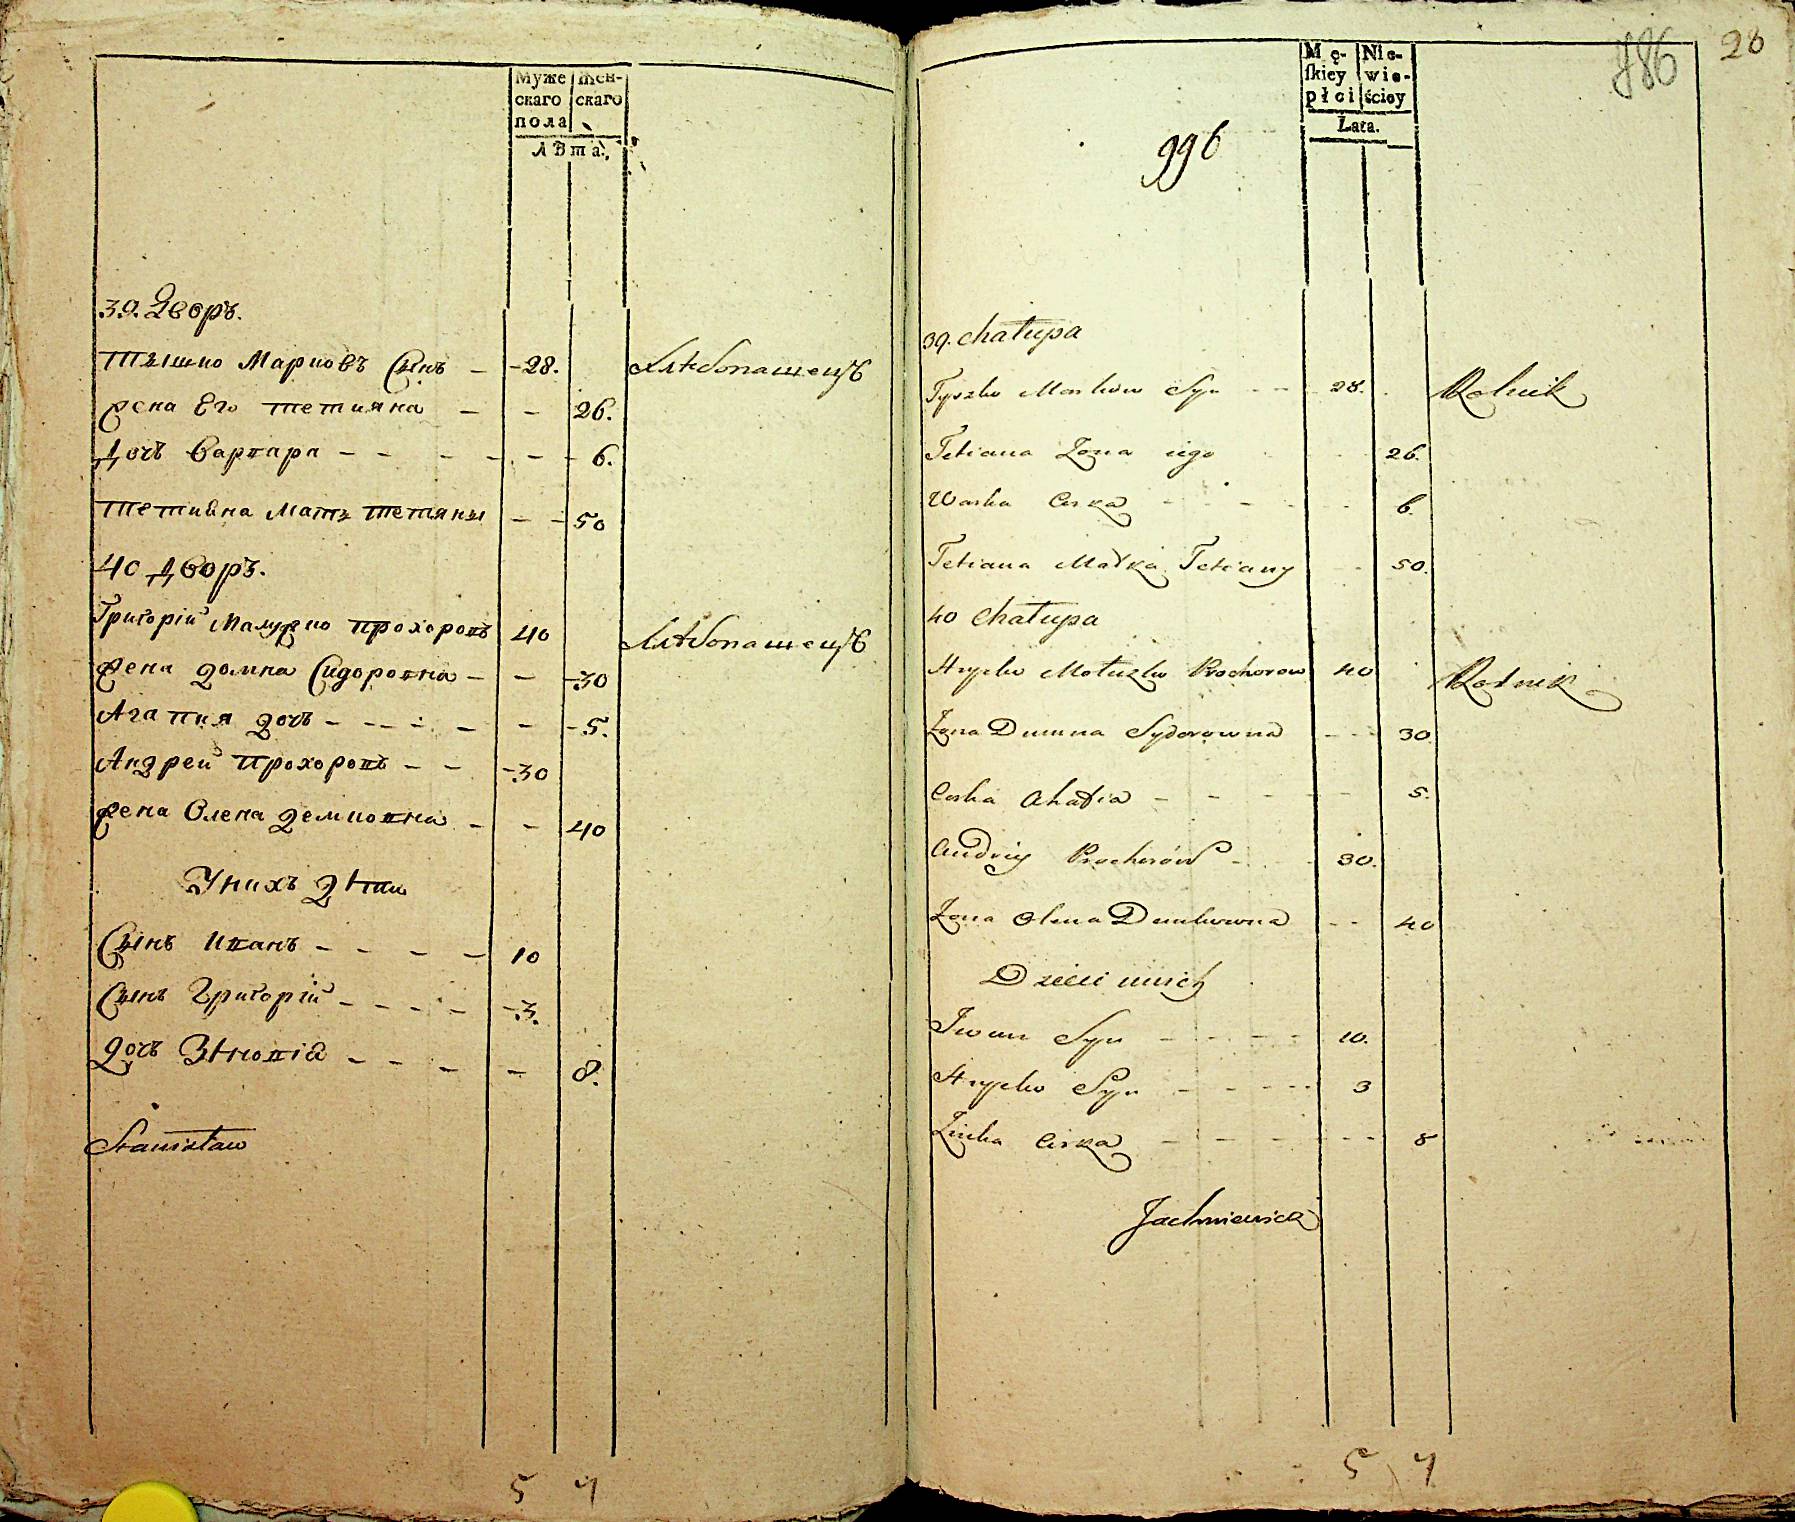 Муже Жен-
скаго скаго
пола
Лѣта.
39. Дворъ.
Тышко Марковъ Сынъ - 28. Хлѣбопашецъ
Жена Его Тетияна - - 26.
Дочь Варвара - - - - - 6.
Тетияна Мать Тетяны - - 50
40 Дворъ.
Григорій Малужко Прохоровъ 40 Хлѣбопашецъ
Жена Домна Сидоровна - - 30
Агапия Дочь - - - - - 5.
Андрей Прохоровъ - - 30
Жена Олена Демковна - - 40
Унихъ Дѣти
Сынъ Иванъ - - - - 10
Сынъ Григорій - - - - 3.
Дочь Зѣновія - - - - 8.
Stanisław
5 7
Mę- Nie-
skiey wie-
płci ściey
Lata.
786 26
996
39. Chałupa
Tyszko Markow Syn - - 28. Rolnik
Tetiana Żona iego - - 26.
Warka Curka - - - - 6.
Tetiana Matka Tetiany - - 50.
40 Chałupa
Hrycko Małuzko Prochorow 40 Rolnik
Żona Dumna Sydorowna - - 30
Corka Ahafia - - - - 5.
Andriy Prochorów - - 30.
Żona Olena Demkowna - - 40
Dzieci unich
Iwan Syn - - - - 10.
Hrycko Syn - - - - 3
Zinka Curka - - - - 8
Jachniewicz
5 7